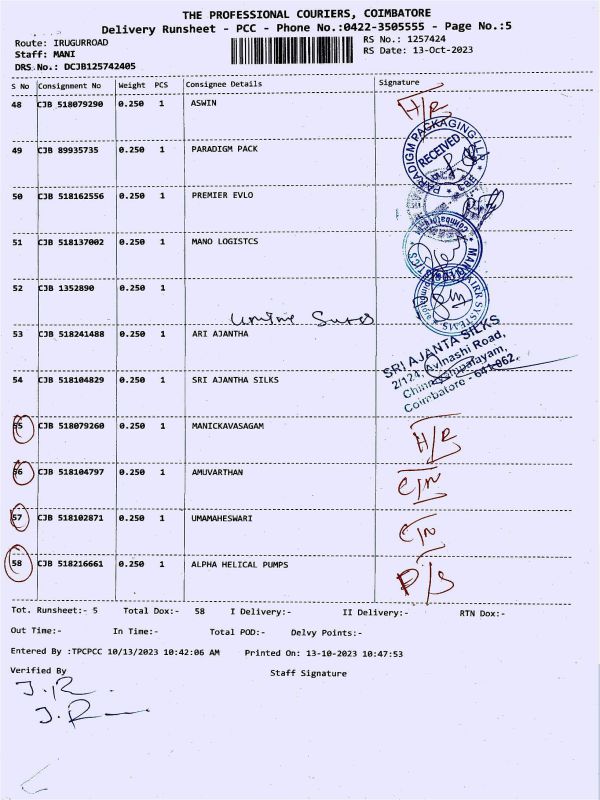 THE PROFESSIONAL COURIERS, COIMBATORE
Delivery Runsheet - PCC - Phone No.:0422-3505555 - Page No.:5
Route: IRUGURROAD
Staff: MANI
DRS No.: DCJB125742405
RS No.: 1257424
RS Date: 13-Oct-2023
S No Consignment No Weight PCS Consignee Details Signature
48 CJB 518079290 0.250 1 ASWIN H/R
49 CJB 89935735 0.250 1 PARADIGM PACK
PARADIGM PACKAGING LLP
RECEIVED
50 CJB 518162556 0.250 1 PREMIER EVLO
51 CJB 518137002 0.250 1 MANO LOGISTCS
52 CJB 1352890 0.250 1
53 CJB 518241488 0.250 1 ARI AJANTHA
SRI AJANTA SILKS
2/124, Avinashi Road,
Chinniampalayam,
Coimbatore - 641 062.
54 CJB 518104829 0.250 1 SRI AJANTHA SILKS
55 CJB 518079260 0.250 1 MANICKAVASAGAM H/R
56 CJB 518104797 0.250 1 AMUVARTHAN C/N
57 CJB 518102871 0.250 1 UMAMAHESWARI C/N
58 CJB 518216661 0.250 1 ALPHA HELICAL PUMPS P/S
Tot. Runsheet:- 5 Total Dox:- 58 I Delivery:- II Delivery:- RTN Dox:-
Out Time:- In Time:- Total POD:- Delvy Points:-
Entered By :TPCPCC 10/13/2023 10:42:06 AM Printed On: 13-10-2023 10:47:53
Verified By Staff Signature
J.R.
J.R